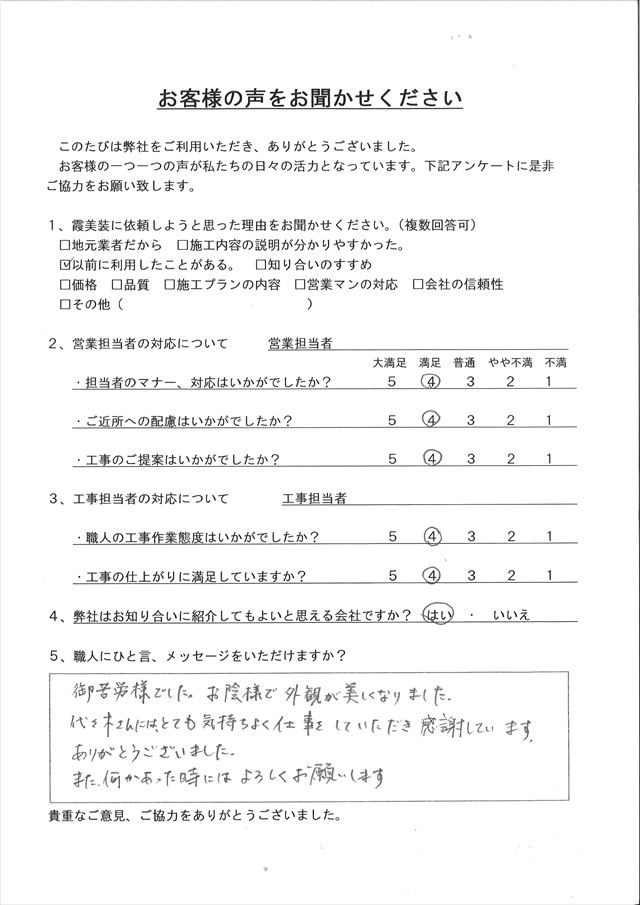 お客様の声をお聞かせください
このたびは弊社をご利用いただき、ありがとうございました。
お客様の一つ一つの声が私たちの日々の活力となっています。下記アンケートに是非
ご協力をお願い致します。
１、霞美装に依頼しようと思った理由をお聞かせください。（複数回答可）
□地元業者だから □施工内容の説明が分かりやすかった。
☑以前に利用したことがある。 □知り合いのすすめ
□価格 □品質 □施工プランの内容 □営業マンの対応 □会社の信頼性
□その他（ ）
２、営業担当者の対応について 営業担当者
大満足 満足 普通 やや不満 不満
・担当者のマナー、対応はいかがでしたか？ 5 ④ 3 2 1
・ご近所への配慮はいかがでしたか？ 5 ④ 3 2 1
・工事のご提案はいかがでしたか？ 5 ④ 3 2 1
３、工事担当者の対応について 工事担当者
・職人の工事作業態度はいかがでしたか？ 5 ④ 3 2 1
・工事の仕上がりに満足していますか？ 5 ④ 3 2 1
４、弊社はお知り合いに紹介してもよいと思える会社ですか？ はい ・ いいえ
５、職人にひと言、メッセージをいただけますか？
御苦労様でした。お陰様で外観が美しくなりました。
代々木さんには、とても気持ちよく仕事をしていただき感謝しています。
ありがとうございました。
また、何かあった時にはよろしくお願いします
貴重なご意見、ご協力をありがとうございました。